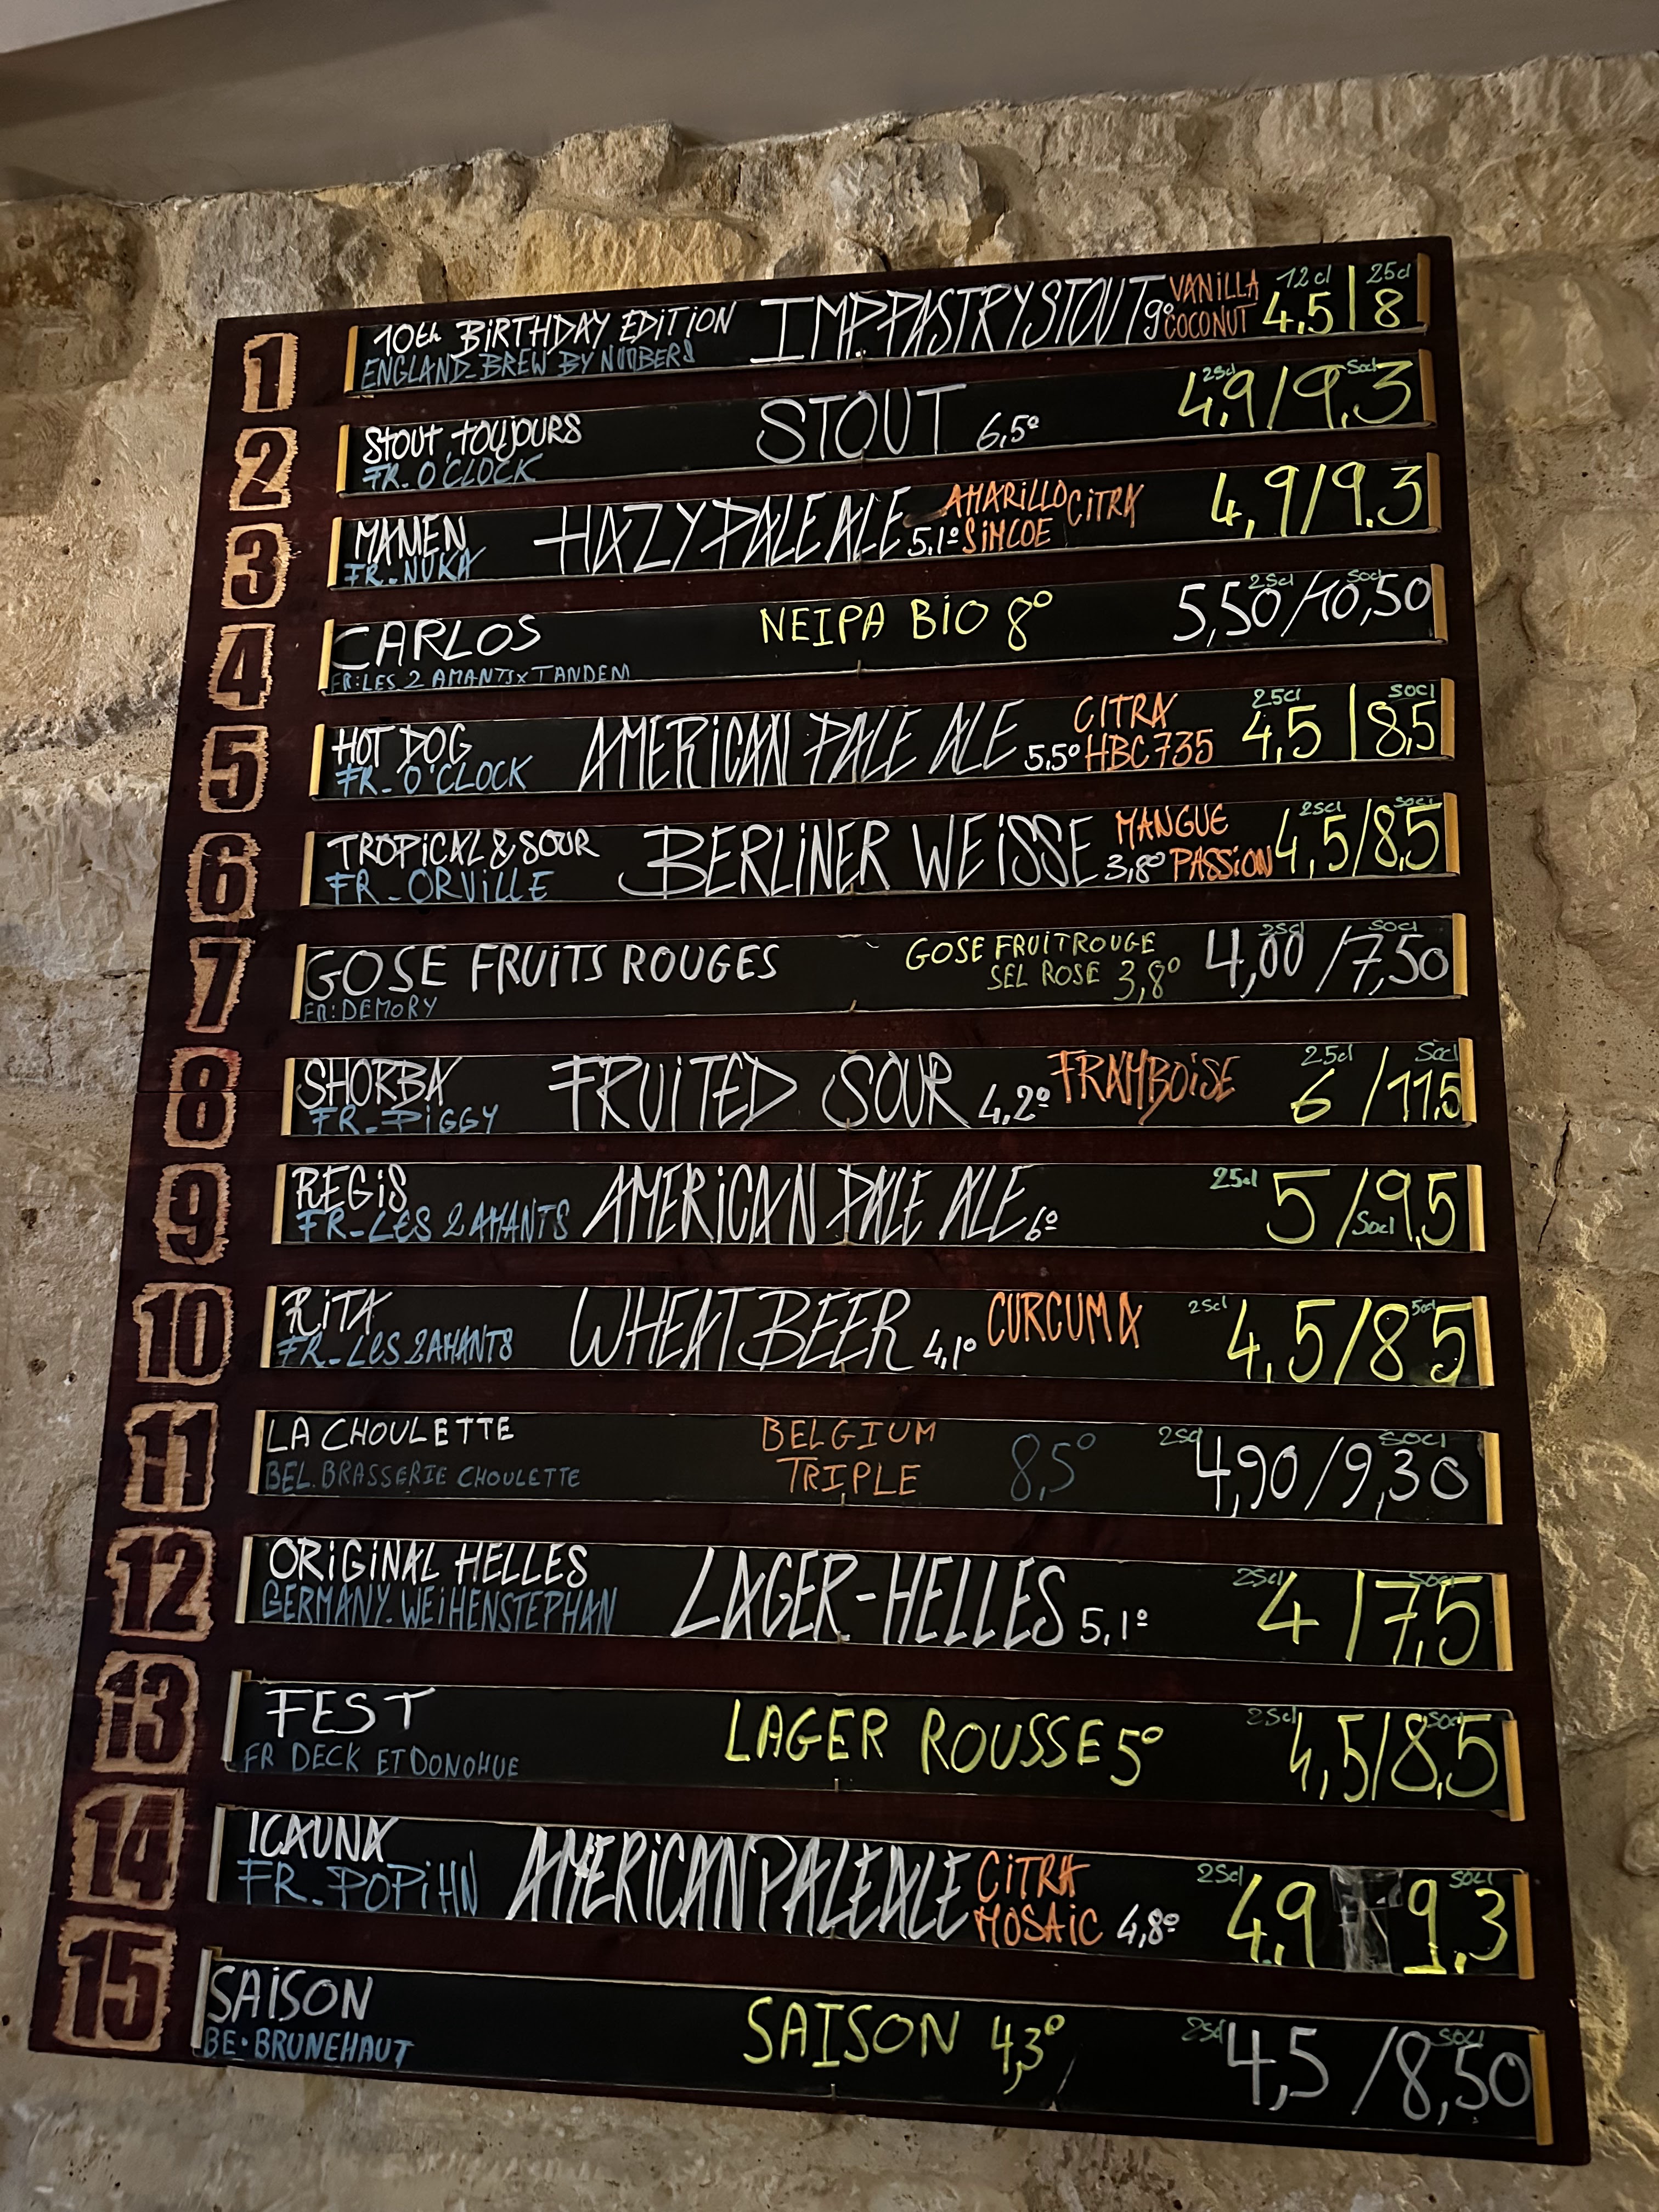 1 10th BiRTHDAY EDiTiON IMP.PASTRY STOUT 9° VANiLLA 12cl 25cl
ENGLAND_BREW BY NUMBERS COCONUT 4,5 | 8
2 STOUT TOUJOURS STOUT 6,5° 25cl 50cl 4,9/9,3
FR_O'CLOCK
3 MANEN HAZY PALE ALE 5,1° AMARILLO CiTRA 4,9/9.3
FR_NUKA SiMCOE
4 CARLOS NEIPA BiO 8° 25cl 50cl 5,50/10,50
FR:LES 2 AMANTS x TANDEM
5 HOT DOG AMERiCAN PALE ALE 5,5° CiTRA 25cl 50cl 4,5 | 8,5
FR_O'CLOCK HBC 735
6 TROPiCAL & SOUR BERLiNER WEiSSE 3,8° MANGUE 25cl 50cl 4,5/8,5
FR_ORViLLE PASSiON
7 GOSE FRUiTS ROUGES GOSE FRUiTROUGE 25cl 50cl 4,00/7,50
FR:DEMORY SEL ROSE 3,8°
8 SHORBA FRUiTED SOUR 4,2° FRAMBOiSE 25cl 50cl 6/11,5
FR_PiGGY
9 REGiS AMERiCAN PALE ALE 6° 25cl 5/9,5 50cl
FR_LES 2 AMANTS
10 RiTA WHEAT BEER 4,1° CURCUMA 25cl 50cl 4,5/8 5
FR_LES 2 AMANTS
11 LA CHOULETTE BELGIUM 8,5° 25cl 50cl 4,90/9,30
BEL.BRASSERIE CHOULETTE TRIPLE
12 ORiGiNAL HELLES LAGER-HELLES 5,1° 25cl 50cl 4 | 7,5
GERMANY.WEiHENSTEPHAN
13 FEST LAGER ROUSSE 5° 25cl 50cl 4,5/8,5
FR DECK ET DONOHUE
14 ICAUNA AMERiCAN PALE ALE CiTRA 25cl 50cl 4,9 9,3
FR_POPiHN MOSAiC 4,8°
15 SAiSON SAISON 4,3° 25cl 50cl 4,5/8,50
BE.BRUNEHAUT